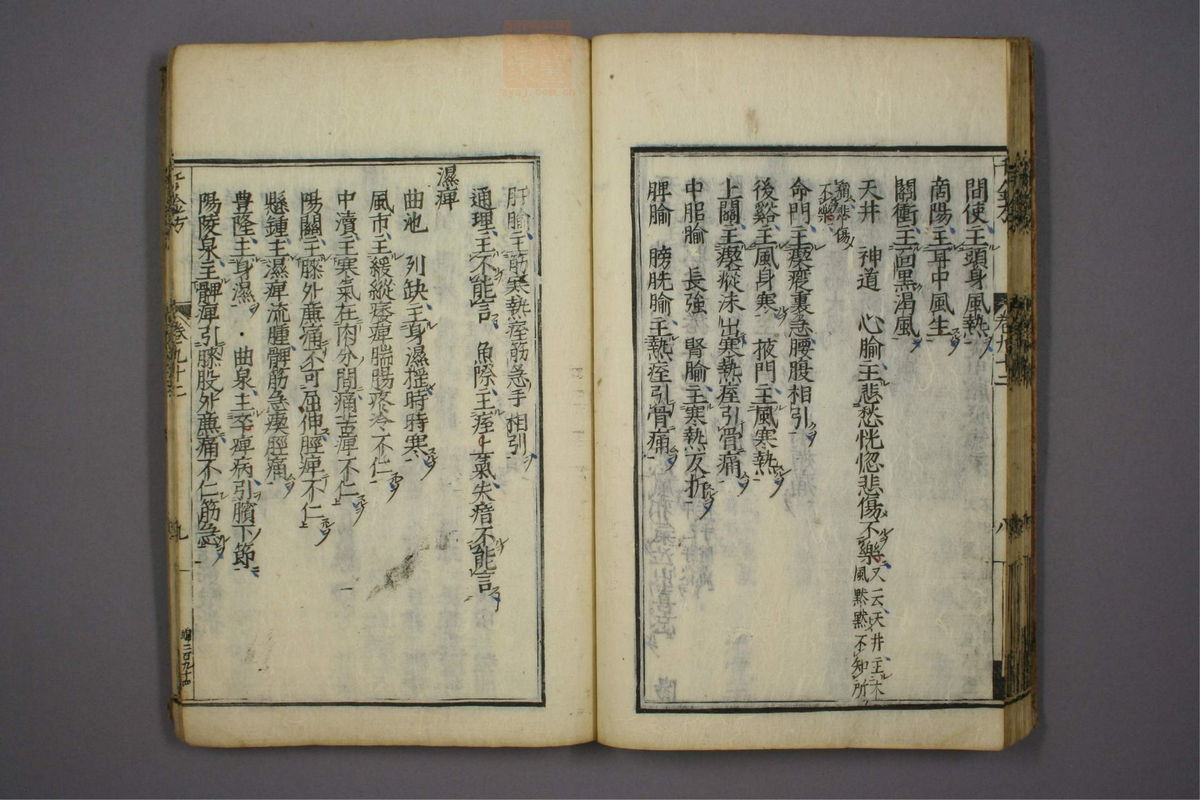 間使主頭身風熱
商陽主耳中風生
關衝主面黑渴風
天井 神道 心腧主悲愁恍惚悲傷不樂又云天井主大風默默不知所
痛悲傷不樂
命門主瘈瘲裏急腰腹相引
後谿主風身寒 掖門主風寒熱
上關主瘈瘲沫出寒熱痓引骨痛
中膂腧 長強 腎腧主寒熱痓反折
脾腧 膀胱腧主熱痓引骨痛
肝腧主筋寒熱痓筋急手相引
通理主不能言 魚際主痓上氣失瘖不能言
濕痺
曲池 列缺主身濕搖時時寒
風市主緩縱痿痺腨腸疼冷不仁
中瀆主寒氣在肉分間痛苦痺不仁
陽關主膝外廉痛不可屈伸脛痺不仁
懸鍾主濕痺流腫髀筋急瘈脛痛
豐隆主身濕 曲泉主卒痺病引臏下節
陽陵泉主髀痺引膝股外廉痛不仁筋急
千金方
卷九十二
八
千金方
卷九十二
九